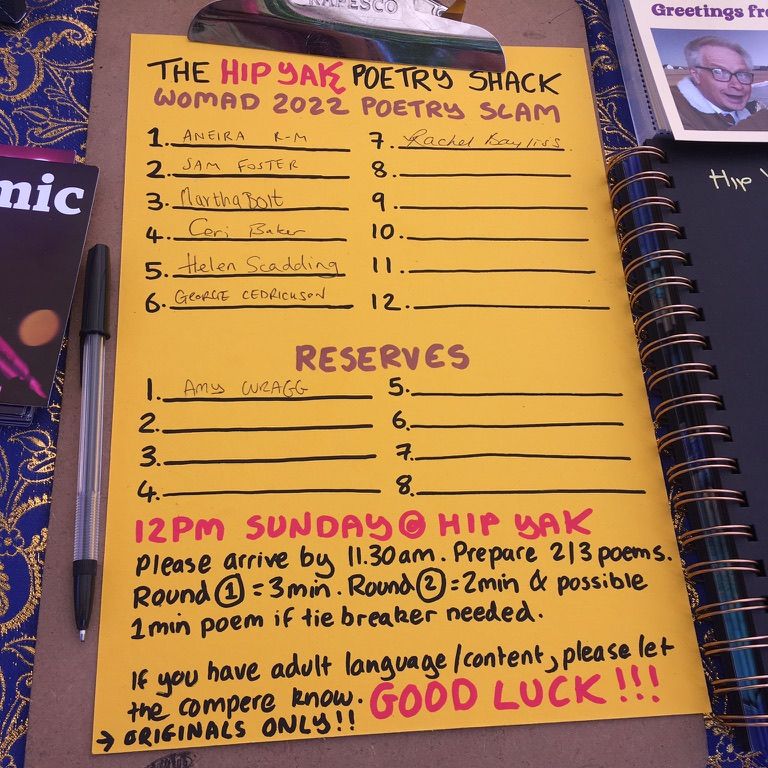 RAPESCO
Greetings fr
mic
Hip Y
THE HIP YAK POETRY SHACK
WOMAD 2022 POETRY SLAM
1. ANEIRA R-M
2. SAM FOSTER
3. Martha Bolt
4. Ceri Baker
5. Helen Scadding
6. GEORGE CEDRICKSON
7. Rachel Bayliss
8.
9.
10.
11.
12.
RESERVES
1. AMY WRAGG
2.
3.
4.
5.
6.
7.
8.
12PM SUNDAY @ HIP YAK
Please arrive by 11.30am. Prepare 2/3 poems.
Round 1 = 3min. Round 2 = 2min & possible
1min poem if tie breaker needed.
If you have adult language/content, please let
the compere know. GOOD LUCK!!!
→ ORIGINALS ONLY!!